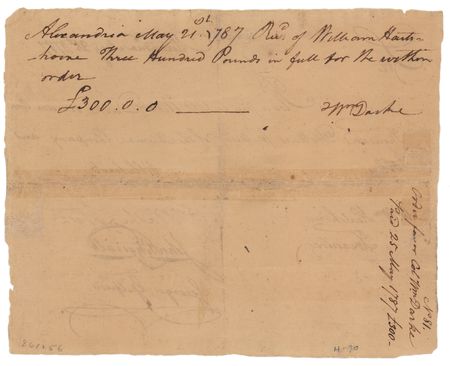 Alexandria May 21.st 1787 Recd. of William Harts-
horne Three Hundred Pounds in full for the within
order
£300.0.0 Wm Darke
No. 81.
Order favor Col Wm Darke
Paid 25 May 1787 £300-
861456